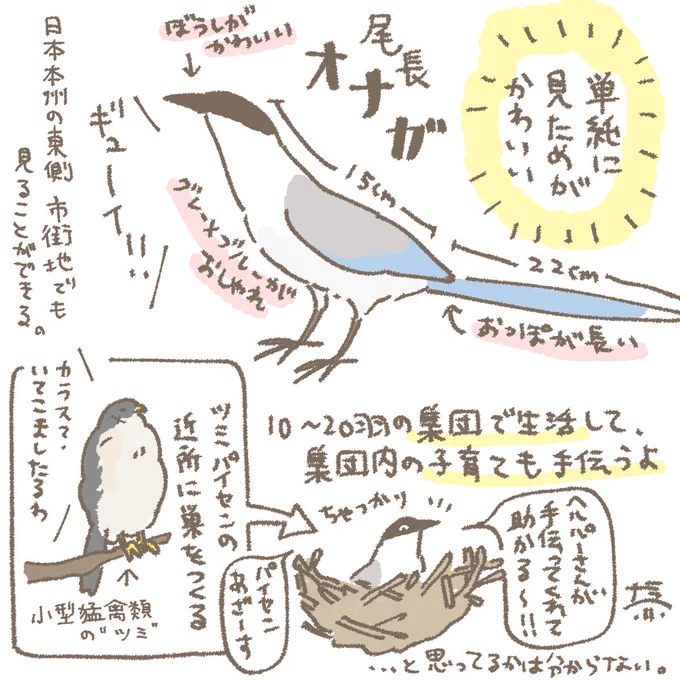 単純に
見ためが
かわいい
尾長
オナガ
ぼうしが
かわいい
日本本州の東側 市街地でも
見ることができる。
ギューイ!!
15cm
22cm
おしゃれ
おっぽが長い
10〜20羽の集団で生活して、
集団内の子育ても手伝うよ
ツミパイセンの
近所に巣をつくる
カラスて、
いてこましたるわ
小型猛禽類
の"ツミ"
ちゃっかり
パイセン
あざーす
ヘルパーさんが
手伝ってくれて
助かる〜!!
...と思ってるかは分からない。